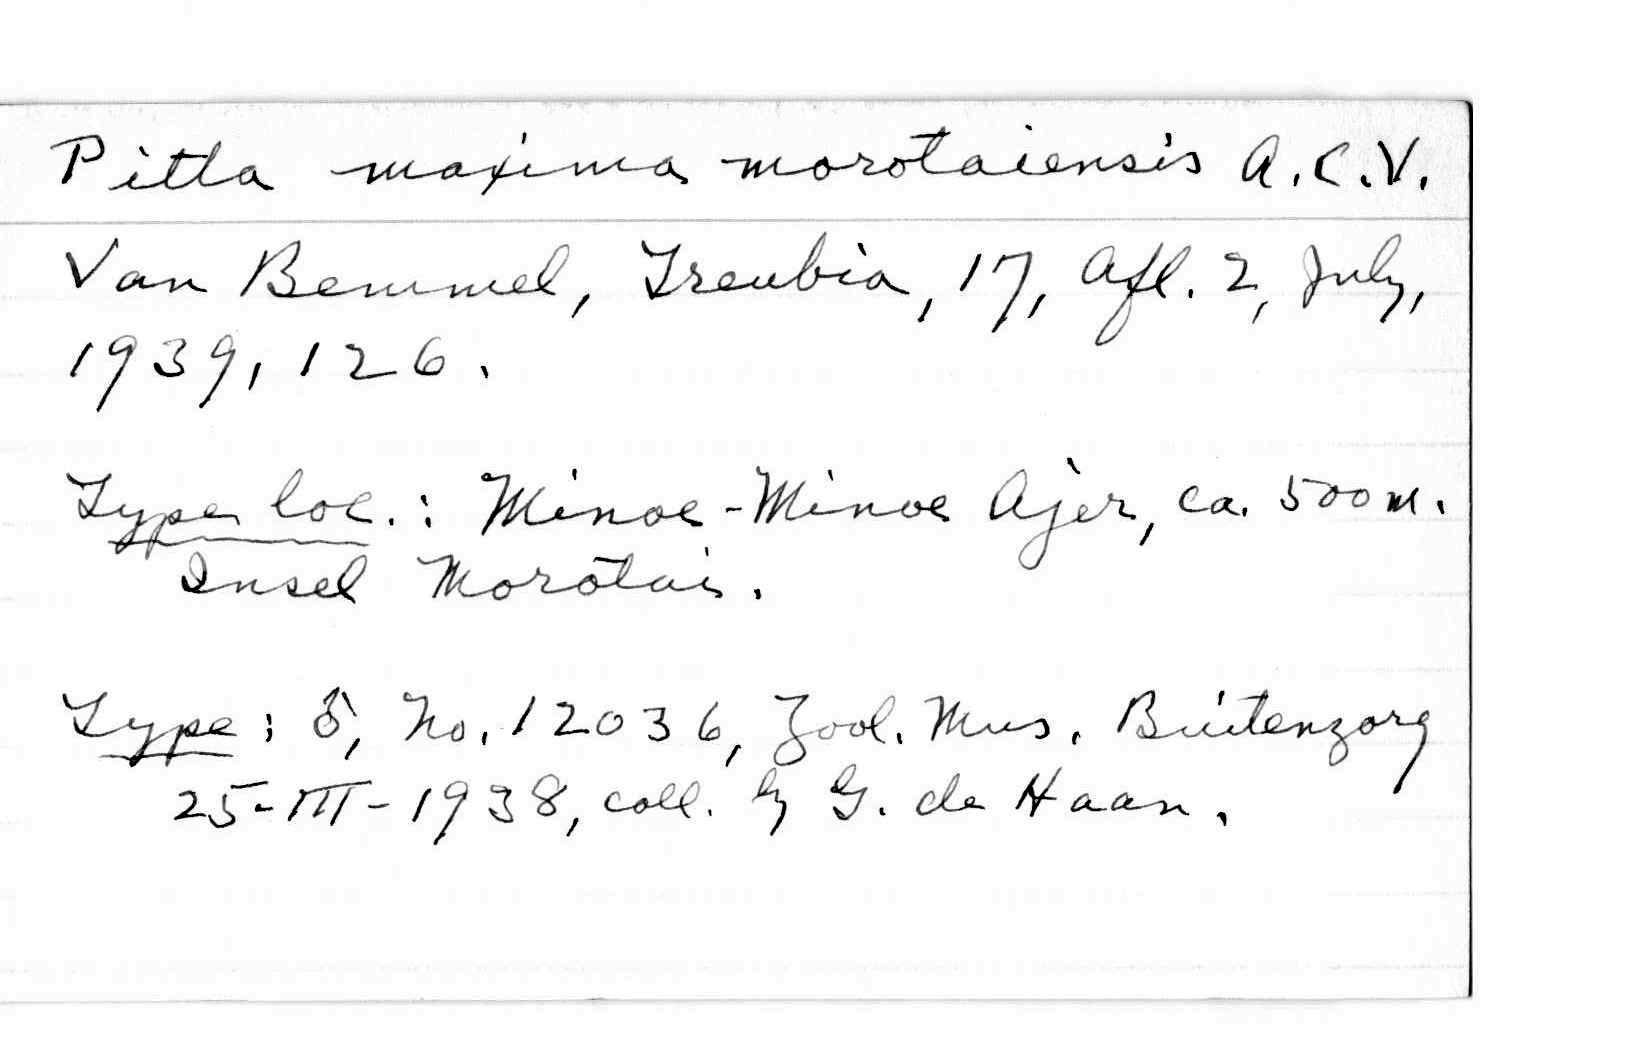 Pitta maxima morotaiensis A.C.V.
Van Bemmel, Treubia, 17, Afl. 2, July,
1939, 126.
Type loc.: Minoe-Minoe Ajer, ca. 500 m.
Insel Morotai.
Type: ♂, No. 12036, Zool. Mus. Buitenzorg
25-III-1938, coll. by G. de Haan.